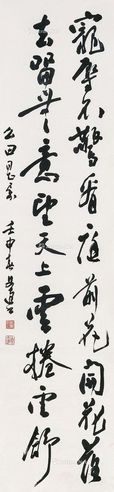 寵辱不驚看庭前花開花落
去留無意望天上雲捲雲舒
壬申春